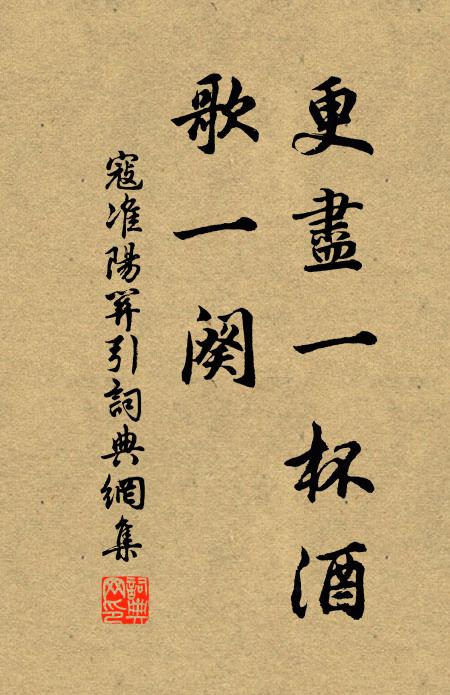 更盡一杯酒
歌一闋
寇准陽関引詞典網集
詞典网印